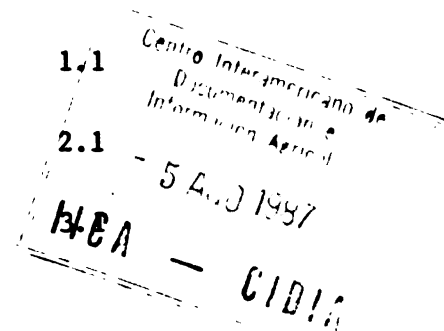 1.1
Centro Interamericano de
Documentación e
Información Agrícola
2.1
- 5 AGO 1987
IICA — CIDIA